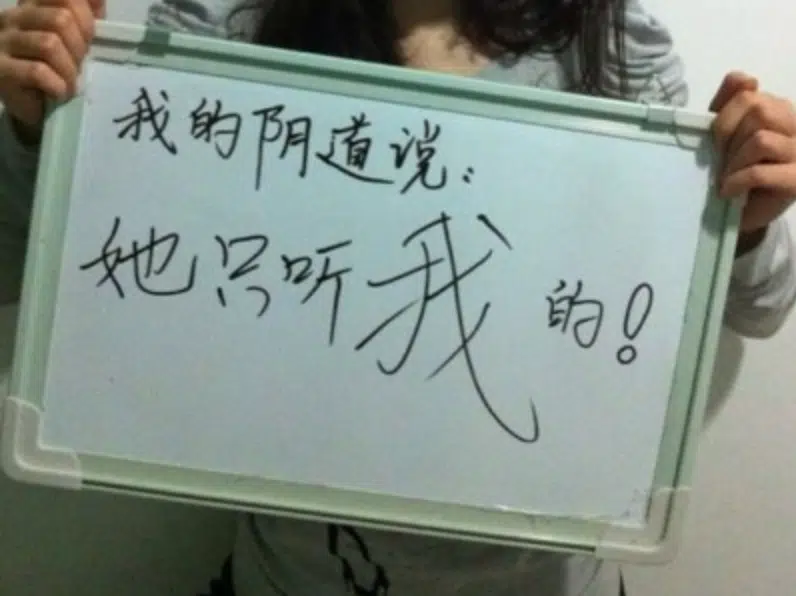 我的阴道说：
她只听我的！